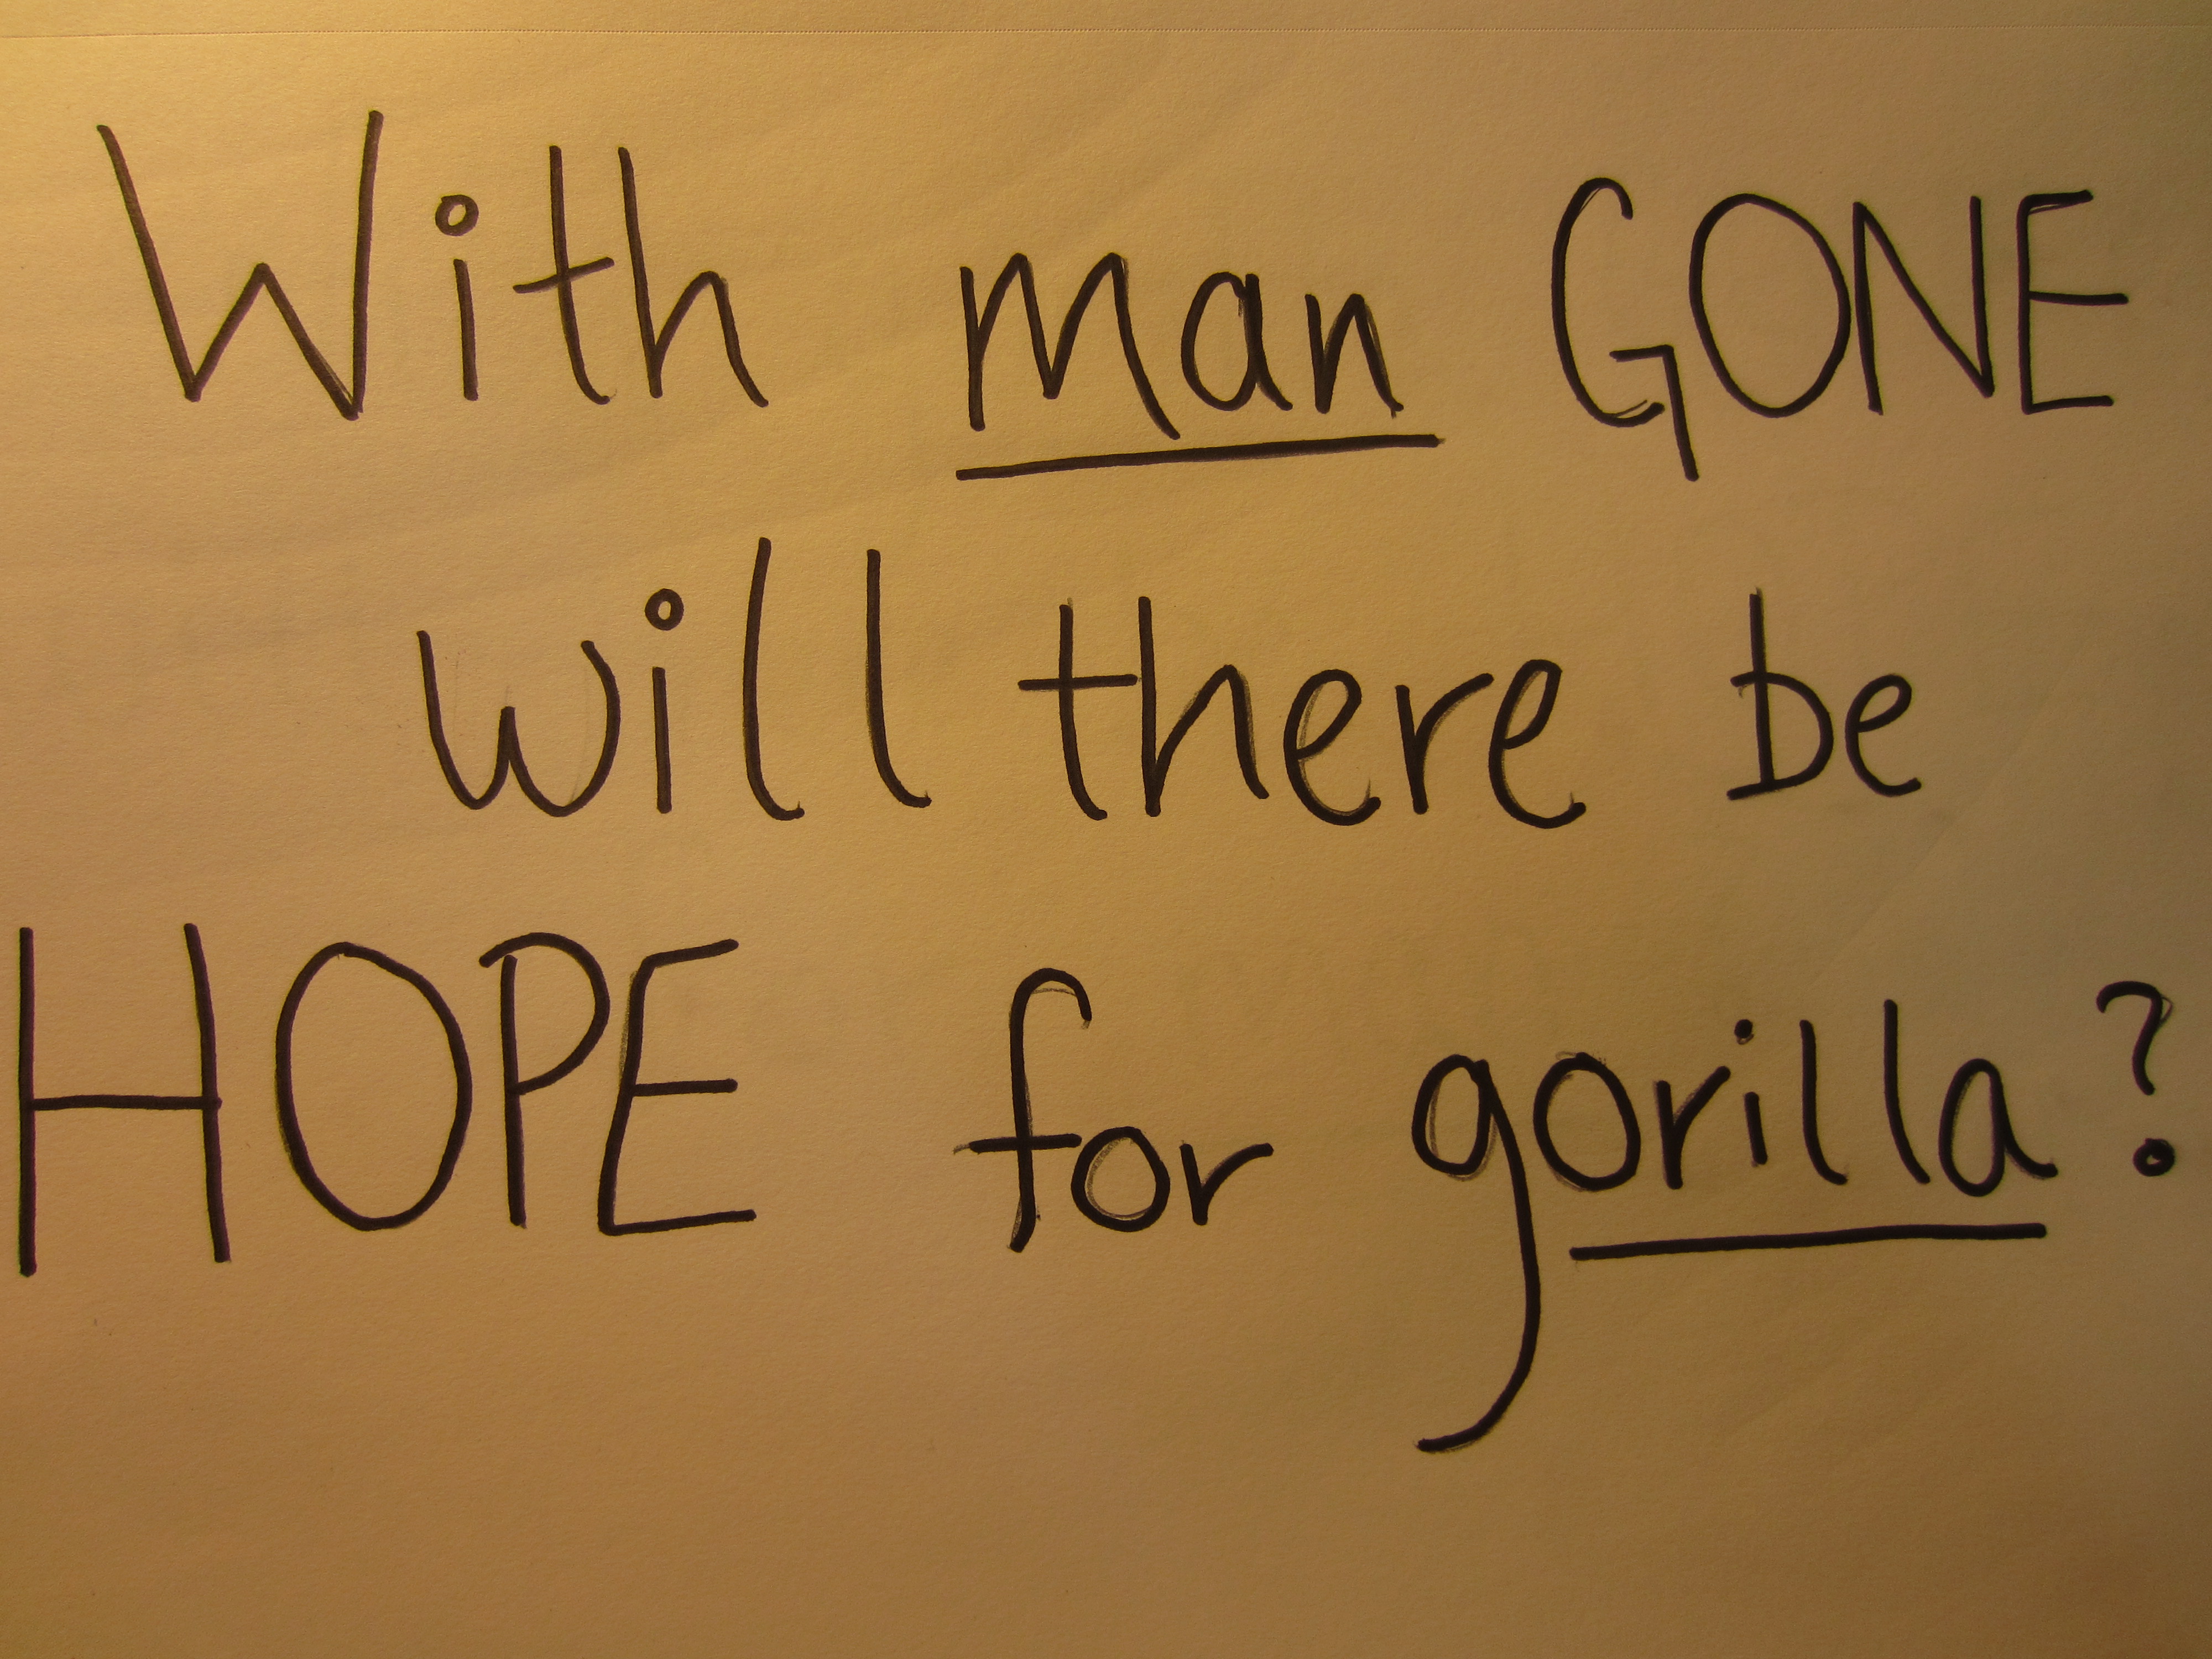 With man GONE
will there be
HOPE for gorilla?